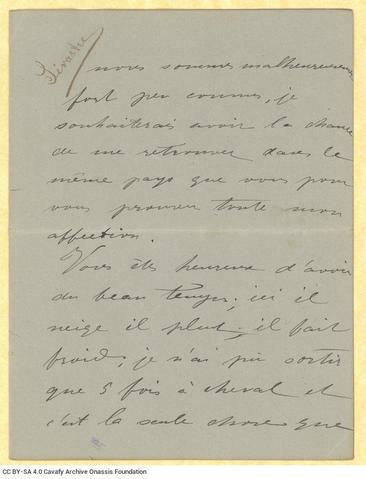 nous sommes malheureusement
fort peu connus, je
souhaiterais avoir la chance
de me retrouver dans le
même pays que vous pour
vous prouver toute mon
affection.
Vous êtes heureux d'avoir
du beau temps; ici il
neige il pleut, il fait
froid, je n'ai pu sortir
que 5 fois à cheval et
c'est la seule chose que
CC BY-SA 4.0 Cavafy Archive Onassis Foundation